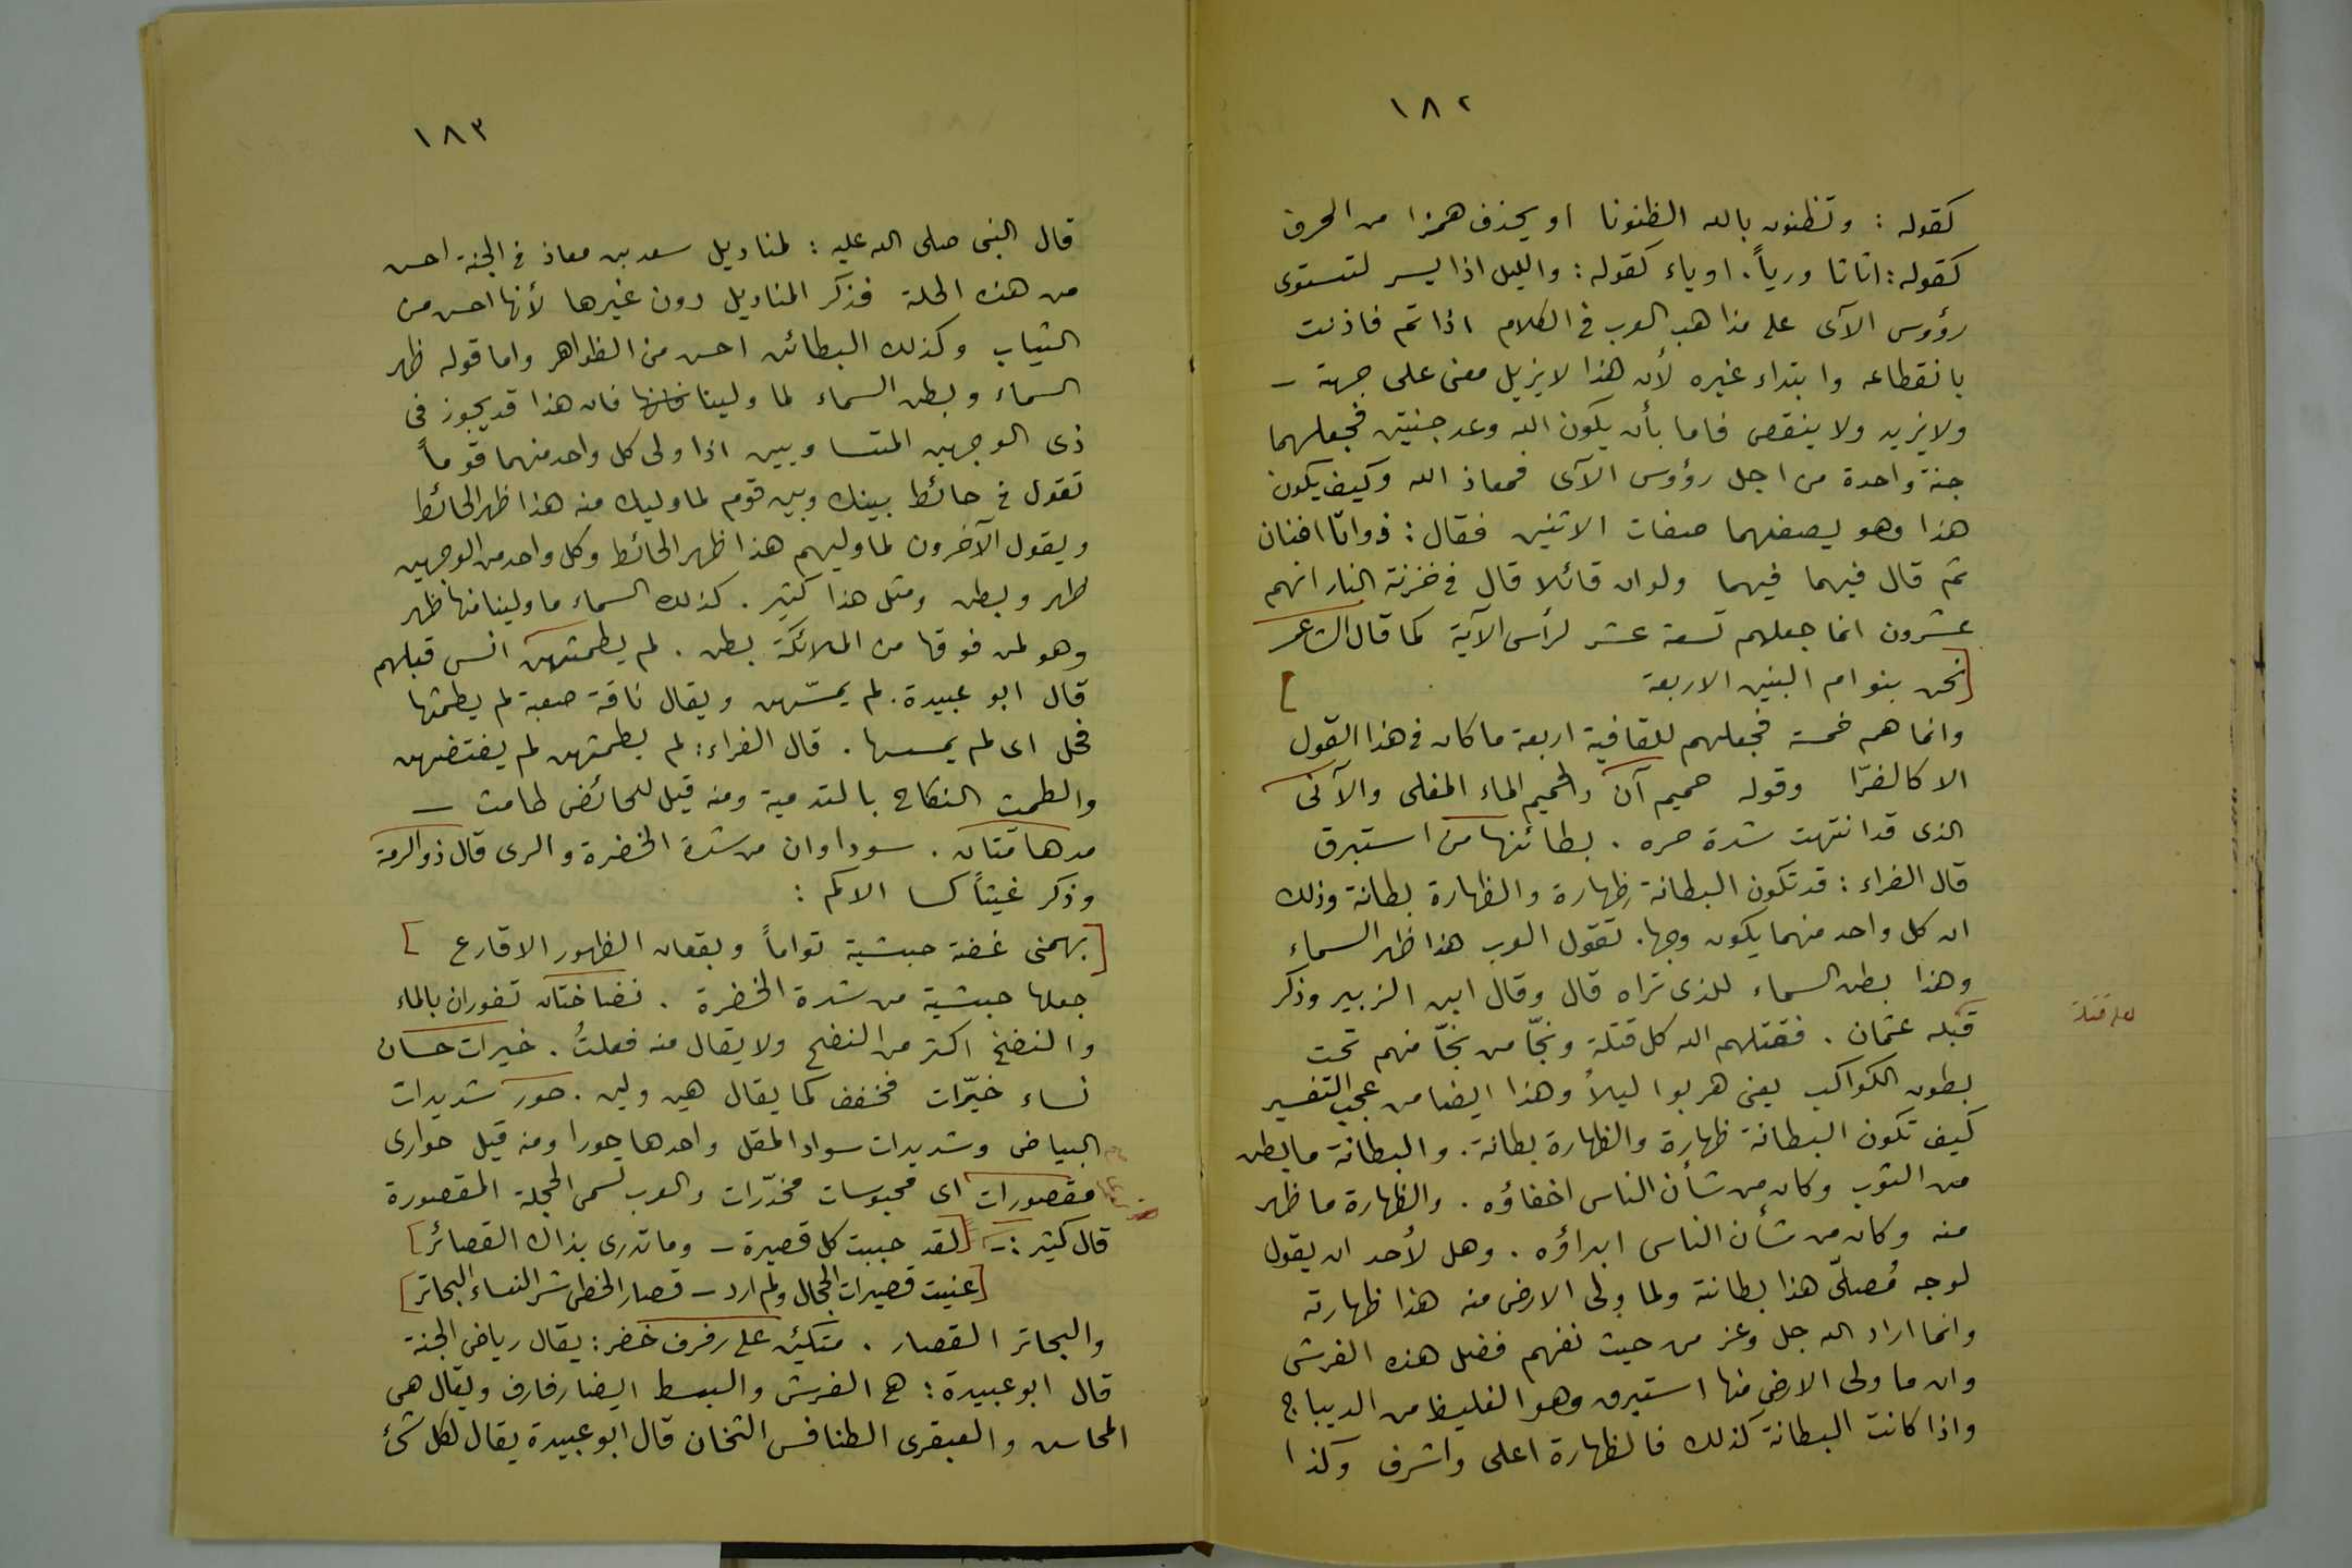 ١٨٢
كقوله : وتظنون بالله الظنونا او يحذف همزا من الحرف
كقوله : اثاثا ورياً . اوياء كقوله : والليل اذا يسر لتستوى
رؤوس الآى على مذاهب العرب فى الكلام اذا تم فاذنت
بانقطاعه وابتداء غيره لأن هذا لا يزيل معنى على جهة –
ولا يزيد ولا ينقص فاما بأن يكون الله وعد جنتين فجعلهما
جنة واحدة من اجل رؤوس الآى فمعاذ الله وكيف يكون
هذا وهو يصفهما صفات الاثنين فقال : ذواتا افنان
ثم قال فيهما فيهما ولوان قائلا قال فى خزنة النار انهم
عشرون انما جعلهم تسعة عشر لرأس الآية كما قال الشاعر
[نحن بنوام البنين الاربعة ]
وانما هم خمسة فجعلهم للقافية اربعة ما كان فى هذا القول
الا كالفرّا وقوله حميم آن والحميم الماء المغلى والآنى
الذى قد انتهت شدة حره . بطائنها من استبرق
قال الفراء : قد تكون البطانة ظهارة والظهارة بطانة وذلك
ان كل واحد منهما يكون وجها . تقول العرب هذا ظهر السماء
وهذا بطن السماء للذى تراه قال وقال ابن الزبير وذكر
قبله عثمان . فقتلهم الله كل قتلة ونجّا من نجّا منهم تحت
لعله قتلة
بطون الكواكب يعنى هربوا ليلاً وهذا ايضا من عجب التفسير
كيف تكون البطانة ظهارة والظهارة بطانة . والبطانة ما بطن
من الثوب وكان من شأن الناس اخفاؤه . والظهارة ما ظهر
منه وكان من شأن الناس ابداؤه . وهل لأحد ان يقول
لوجه مُصلّى هذا بطانته ولما ولى الارض منه هذا ظهارته
وانما اراد الله جل وعز من حيث نفهم فضل هذه الفرش
وان ما ولى الارض منها استبرق وهو الغليظ من الديباج
واذا كانت البطانة كذلك فالظهارة اعلى واشرف وكذا
١٨٣
قال النبى صلى الله عليه : لمناديل سعد بن معاذ فى الجنة احسن
من هذه الحلة فذكر المناديل دون غيرها لأنها احسن من
الثياب وكذلك البطائن احسن من الظواهر واما قوله ظهر
السماء وبطن السماء لما ولينا فان هذا قد يجوز فى
ذى الوجهين المتساويين اذا ولى كل واحد منهما قوماً
تقول فى حائط بينك وبين قوم لما وليك منه هذا ظهر الحائط
ويقول الآخرون لما وليهم هذا ظهر الحائط وكل واحد من الوجهين
ظهر وبطن ومثل هذا كثير . كذلك السماء ما ولينا منها ظهر
وهو لمن فوقها من الملائكة بطن . لم يطمثهن انس قبلهم
قال ابو عبيدة . لم يمسّهن ويقال ناقة صعبة لم يطمثها
فحل اى لم يمسسها . قال الفراء : لم يطمثهن لم يفتضهن
والطمث النكاح بالتدمية ومنه قيل للحائض طامث –
مدهامتان . سوداوان من شدة الخضرة والرى قال ذو الرمة
وذكر غيثاً كسا الاكم :
[بهمنى غضة حبشية تواماً وبقعان الظهور الاقارع ]
جعلها حبشية من شدة الخضرة . نضاختان تفوران بالماء
والنضخ اكثر من النضح ولا يقال منه فعلتُ . خيرات حسان
نساء خيّرات فخفف كما يقال هين ولين . حور شديدات
البياض وشديدات سواد المقل واحدها حورا ومنه قيل حوارى
مقصورات اى محبوسات مخدّرات والعرب تسمى الحجلة المقصورة
قال كثير :– [لقد حببت كل قصيرة – وما تدرى بذاك القصائر]
[عنيت قصيرات الحجال ولم ارد – قصار الخطى شر النساء البحاتر]
والبحاتر القصار . متكئين على رفرف خضر : يقال رياض الجنة
قال ابو عبيدة : هى الفرش والبسط ايضا رفارف ويقال هى
المحاسن والعبقرى الطنافس الثخان قال ابو عبيدة يقال لكل شئ